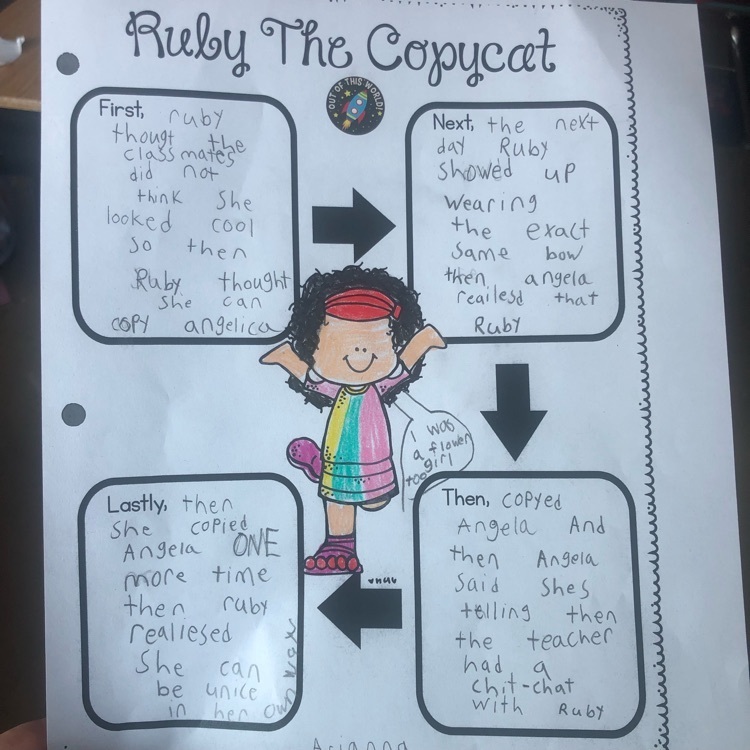 Ruby The Copycat
OUT OF THIS WORLD!
First, ruby
thougt the
class mates
did not
think She
looked cool
so then
Ruby thought
she can
copy angelica
Next, the next
day Ruby
Showed up
Wearing
the exact
Same bow
then angela
reailesd that
Ruby
I was
a flower
girl
too
Then, copyed
Angela And
then Angela
Said Shes
telling then
the teacher
had a
chit-chat
with Ruby
Lastly, then
She copied
Angela ONE
more time
then ruby
realiesed
She can
be unice
in her own
way
Arianna